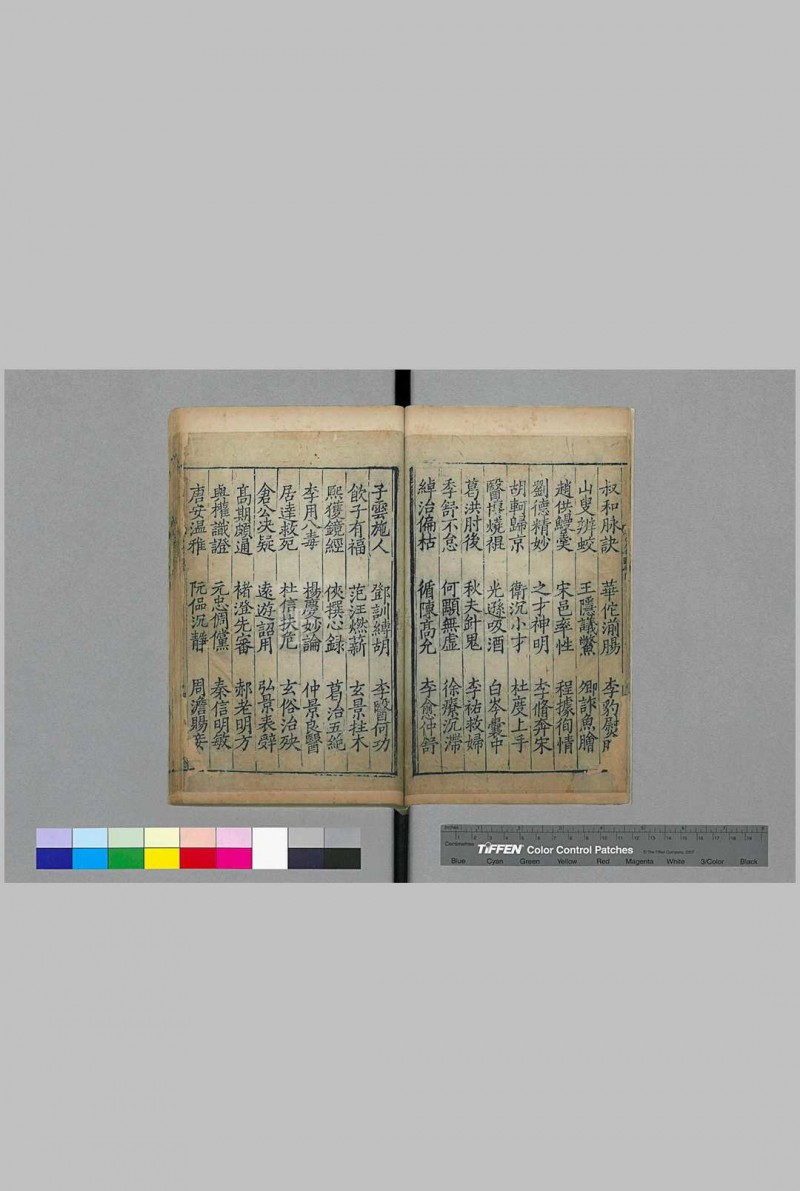 叔和脉訣 華佗湔腸 李豹熨
山叟辨蛟 王隱議鱉 卿詐魚膾
趙供鰻羹 宋邑率性 程據徇情
劉德精妙 之才神明 李脩奔宋
胡軻歸京 衛沉小才 杜度上手
醫博燒裩 光遜噀酒 白岑囊中
葛洪肘後 秋夫針鬼 李祐救婦
季舒不怠 何顒無虛 徐療沉滯
綽治偏枯 循陳高允 李愈仲舒
子雲施人 鄧訓縛胡 李醫何功
飲子有福 范汪燃薪 玄景拄木
熙獲鏡經 俠撰心録 葛治五絕
李用八毒 楊慶妙論 仲景良醫
居達救苑 杜信扶危 玄俗治殃
倉公決疑 遠遊詔用 弘景表辭
高期頗通 褚澄先審 郝老明方
奥權識證 元忠倜儻 秦信明敏
唐安温雅 阮偘沉靜 周澹賜妾
Inches
Centimetres
TIFFEN Color Control Patches
Blue Cyan Green Yellow Red Magenta White 3/Color Black